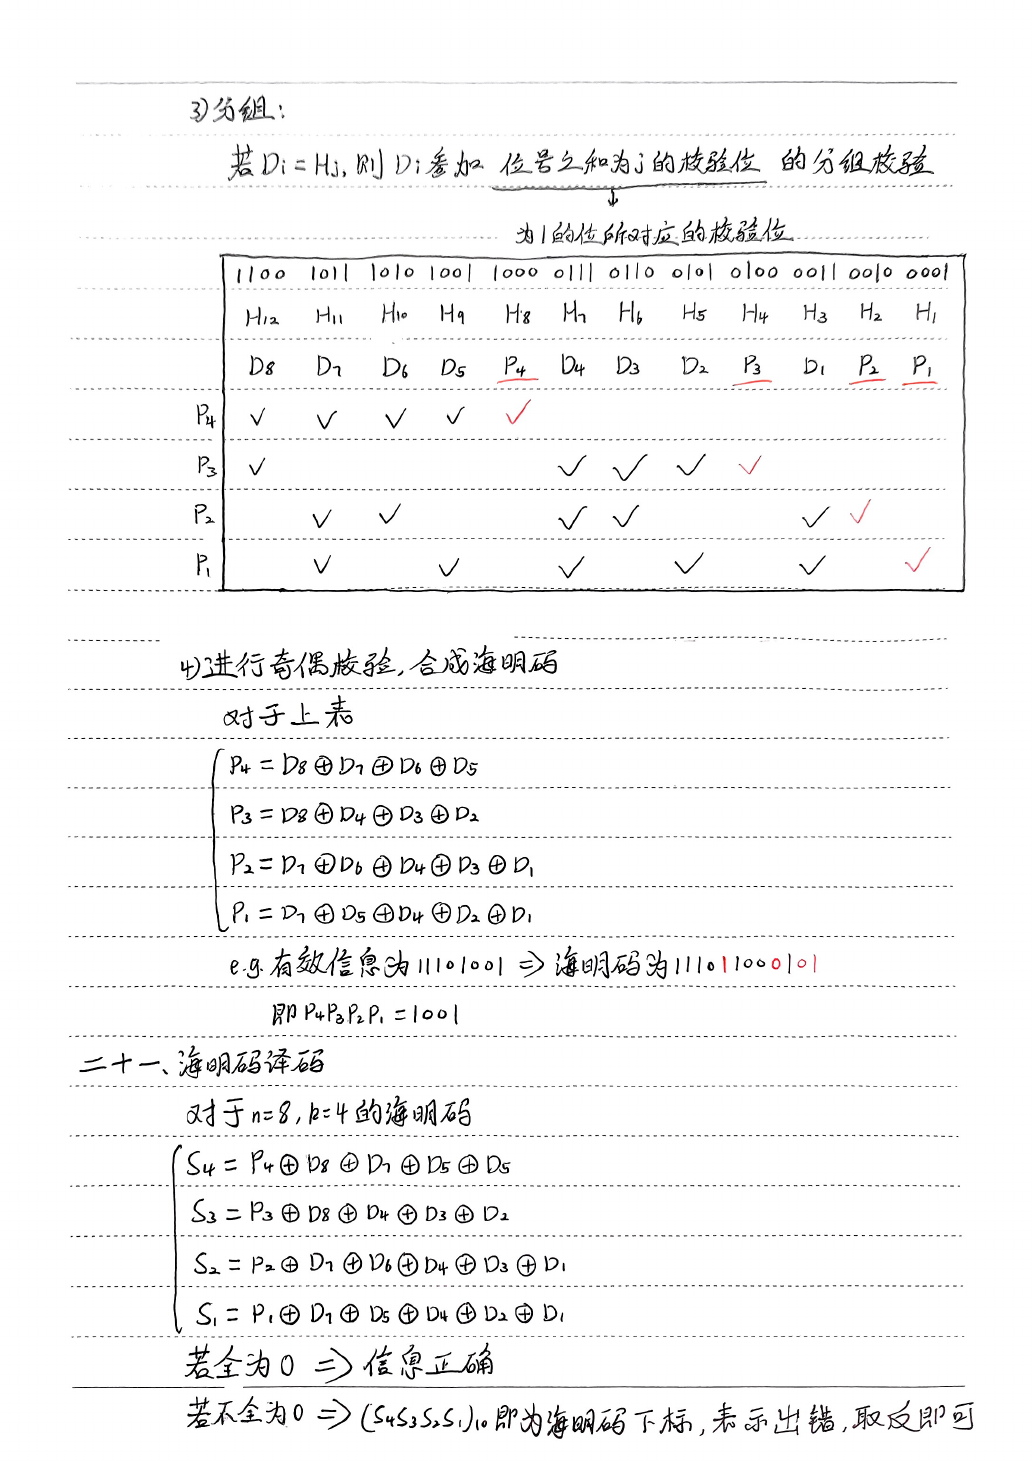 3)分组:
若Di=Hj,则Di参加 位号之和为j的校验位 的分组校验
↓
为1的位所对应的校验位
1100 1011 1010 1001 1000 0111 0110 0101 0100 0011 0010 0001
H12 H11 H10 H9 H8 H7 H6 H5 H4 H3 H2 H1
D8 D7 D6 D5 P4 D4 D3 D2 P3 D1 P2 P1
P4 ✓ ✓ ✓ ✓ ✓
P3 ✓ ✓ ✓ ✓ ✓
P2 ✓ ✓ ✓ ✓ ✓ ✓
P1 ✓ ✓ ✓ ✓ ✓ ✓
4)进行奇偶校验,合成海明码
对于上表
P4=D8⊕D7⊕D6⊕D5
P3=D8⊕D4⊕D3⊕D2
P2=D7⊕D6⊕D4⊕D3⊕D1
P1=D7⊕D5⊕D4⊕D2⊕D1
e.g.有效信息为11101001 ⇒ 海明码为111011000101
即P4P3P2P1=1001
二十一、海明码译码
对于n=8,k=4的海明码
S4=P4⊕D8⊕D7⊕D5⊕D5
S3=P3⊕D8⊕D4⊕D3⊕D2
S2=P2⊕D7⊕D6⊕D4⊕D3⊕D1
S1=P1⊕D7⊕D5⊕D4⊕D2⊕D1
若全为0 ⇒ 信息正确
若不全为0 ⇒ (S4S3S2S1)10即为海明码下标,表示出错,取反即可